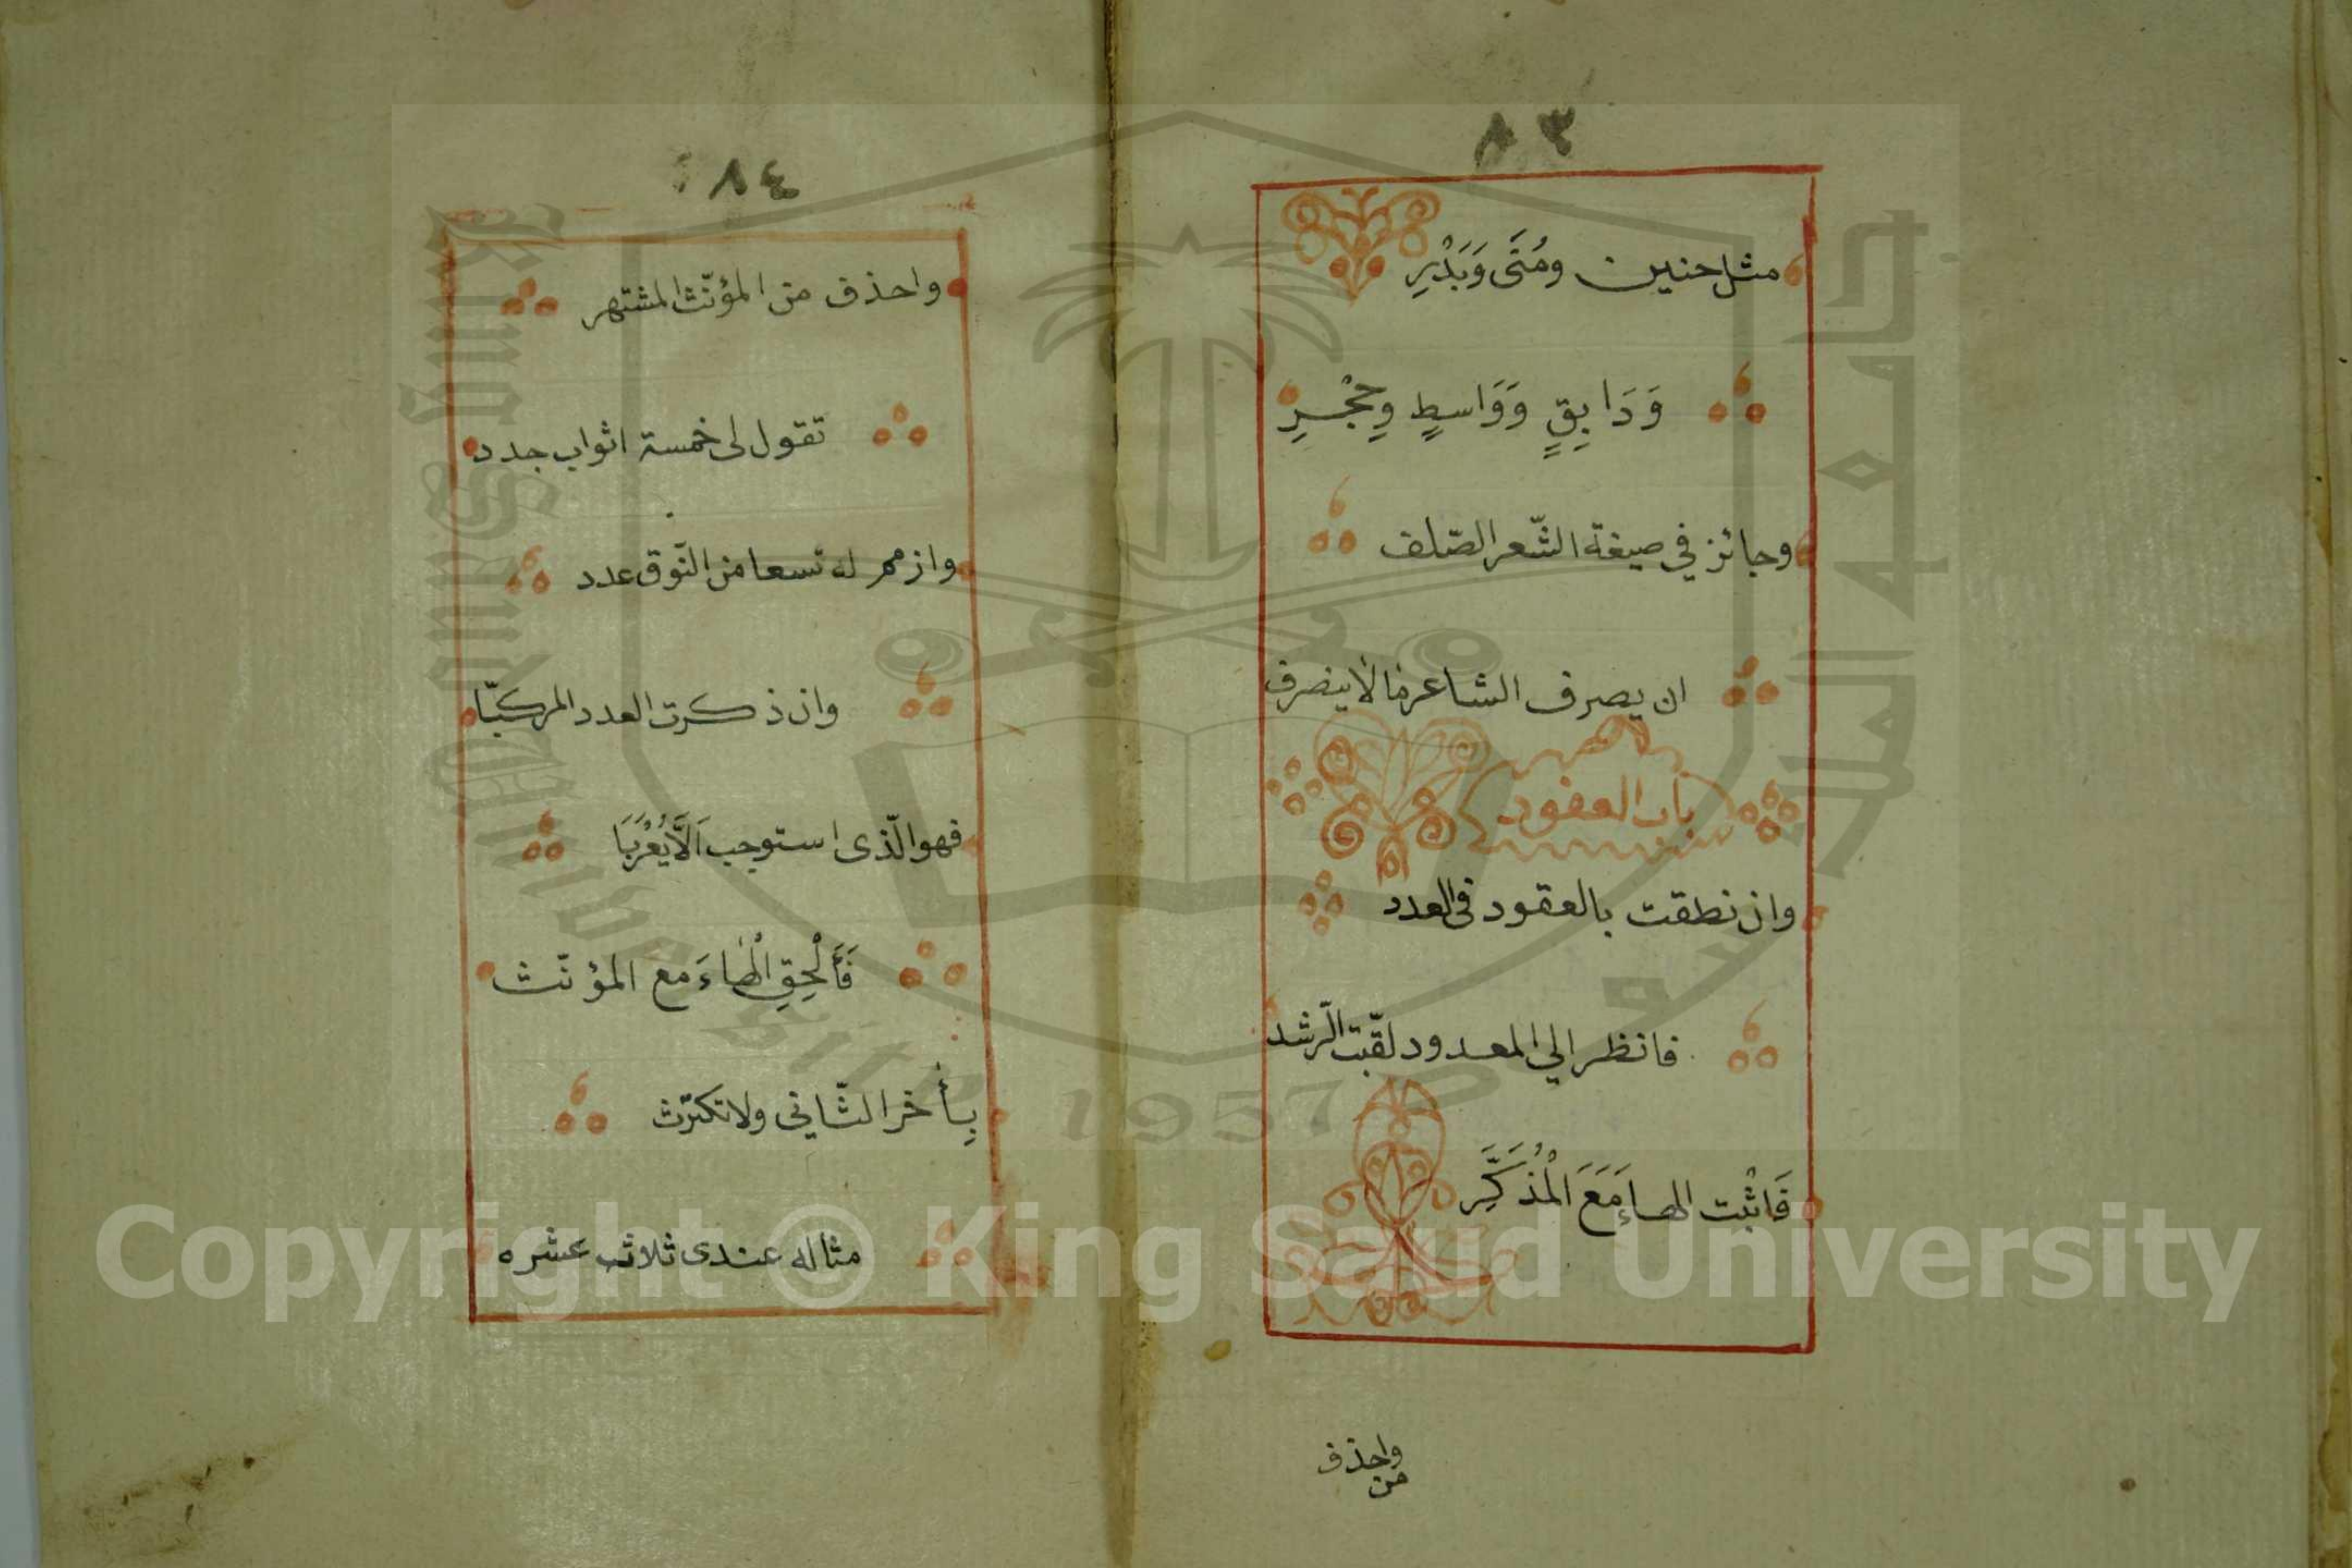 ٨٣
مثل حنين ومُتًى وَبَدْرِ
وَدَابِقٍ وَوَاسِطٍ وِحِجْرِ
وجائز في صيغة الشّعر الصّلف
ان يصرف الشاعر ما لا ينصرف
باب العقود
وان نطقت بالعقود فى العدد
فانظر الي المعدود لقّبت الرّشد
فَاثْبت الهاءَ مَعَ الْمُذَكَّرِ
واحذف
من
٨٤
واحذف من المؤنّث المشتهر
تقول لى خمسة اثواب جدد
وازمم له تسعا من النّوق عدد
وان ذكرت العدد المركبّا
فهو الّذى استوجب اَلاَّ يُعْرَبَا
فَأَلْحِقِ الْهاءَ مع المؤنّث
بِأخر الثّاني ولا تكترث
مثاله عندى ثلاث عشره
جامعة الملك سعود
King Saud University
1957
Copyright © King Saud University